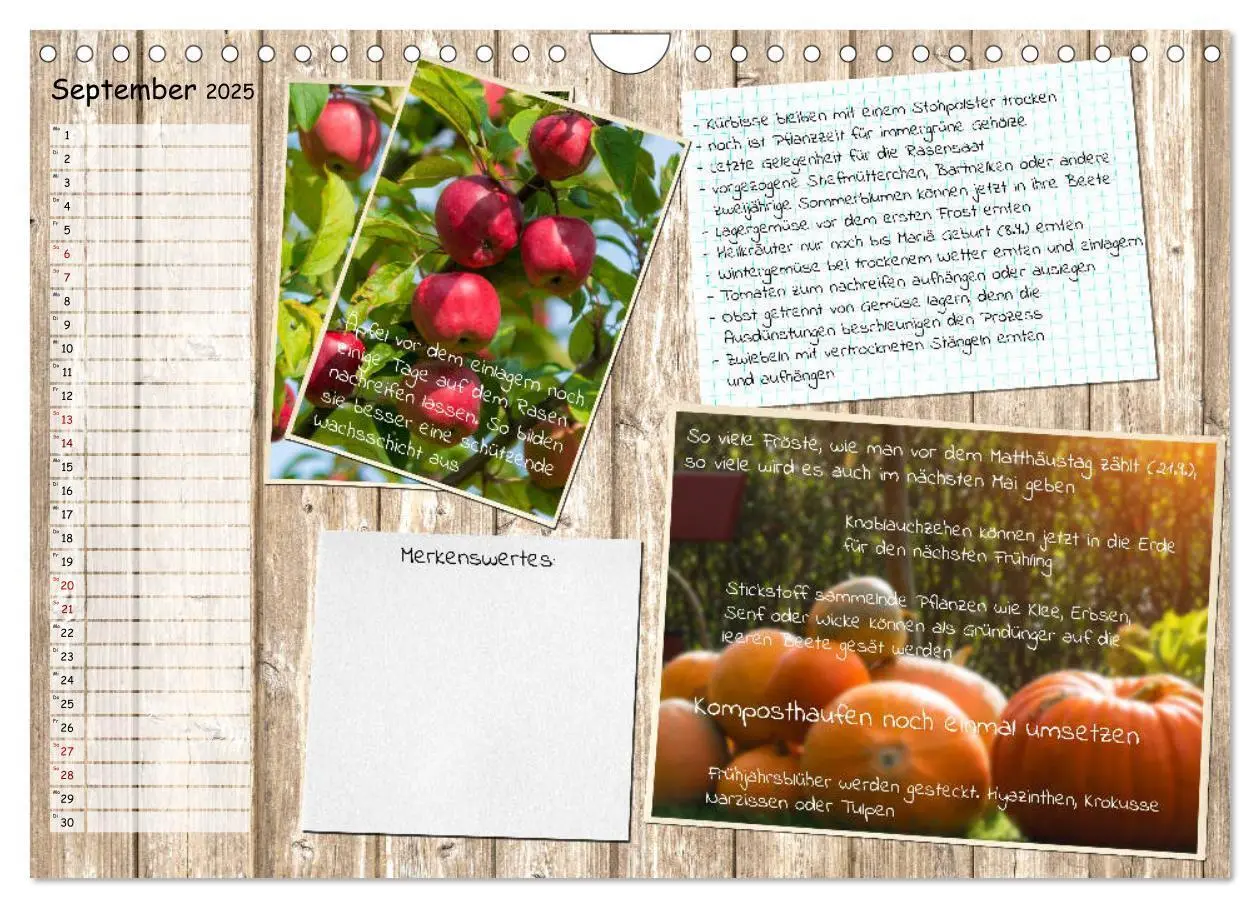 September 2025
Mo 1
Di 2
Mi 3
Do 4
Fr 5
Sa 6
So 7
Mo 8
Di 9
Mi 10
Do 11
Fr 12
Sa 13
So 14
Mo 15
Di 16
Mi 17
Do 18
Fr 19
Sa 20
So 21
Mo 22
Di 23
Mi 24
Do 25
Fr 26
Sa 27
So 28
Mo 29
Di 30
Äpfel vor dem einlagern noch
einige Tage auf dem Rasen
nachreifen lassen. So bilden
sie besser eine schützende
Wachsschicht aus
- Kürbisse bleiben mit einem Stohpolster trocken
- noch ist Pflanzzeit für immergrüne Gehölze
- Letzte Gelegenheit für die Rasensaat
- vorgezogene Stiefmütterchen, Bartnelken oder andere
zweijährige Sommerblumen können jetzt in ihre Beete
- Lagergemüse vor dem ersten Frost ernten
- Heilkräuter nur noch bis Mariä Geburt (8.9.) ernten
- Wintergemüse bei trockenem Wetter ernten und einlagern
- Tomaten zum nachreifen aufhängen oder auslegen
- Obst getrennt von Gemüse lagern, denn die
Ausdünstungen beschleunigen den Prozess
- Zwiebeln mit vertrockneten Stängeln ernten
und aufhängen
Merkenswertes:
So viele Fröste, wie man vor dem Matthäustag zählt (21.9.),
so viele wird es auch im nächsten Mai geben
Knoblauchzehen können jetzt in die Erde
für den nächsten Frühling
Stickstoff sammelnde Pflanzen wie Klee, Erbsen,
Senf oder Wicke können als Gründünger auf die
leeren Beete gesät werden
Komposthaufen noch einmal umsetzen
Frühjahrsblüher werden gesteckt. Hyazinthen, Krokusse
Narzissen oder Tulpen